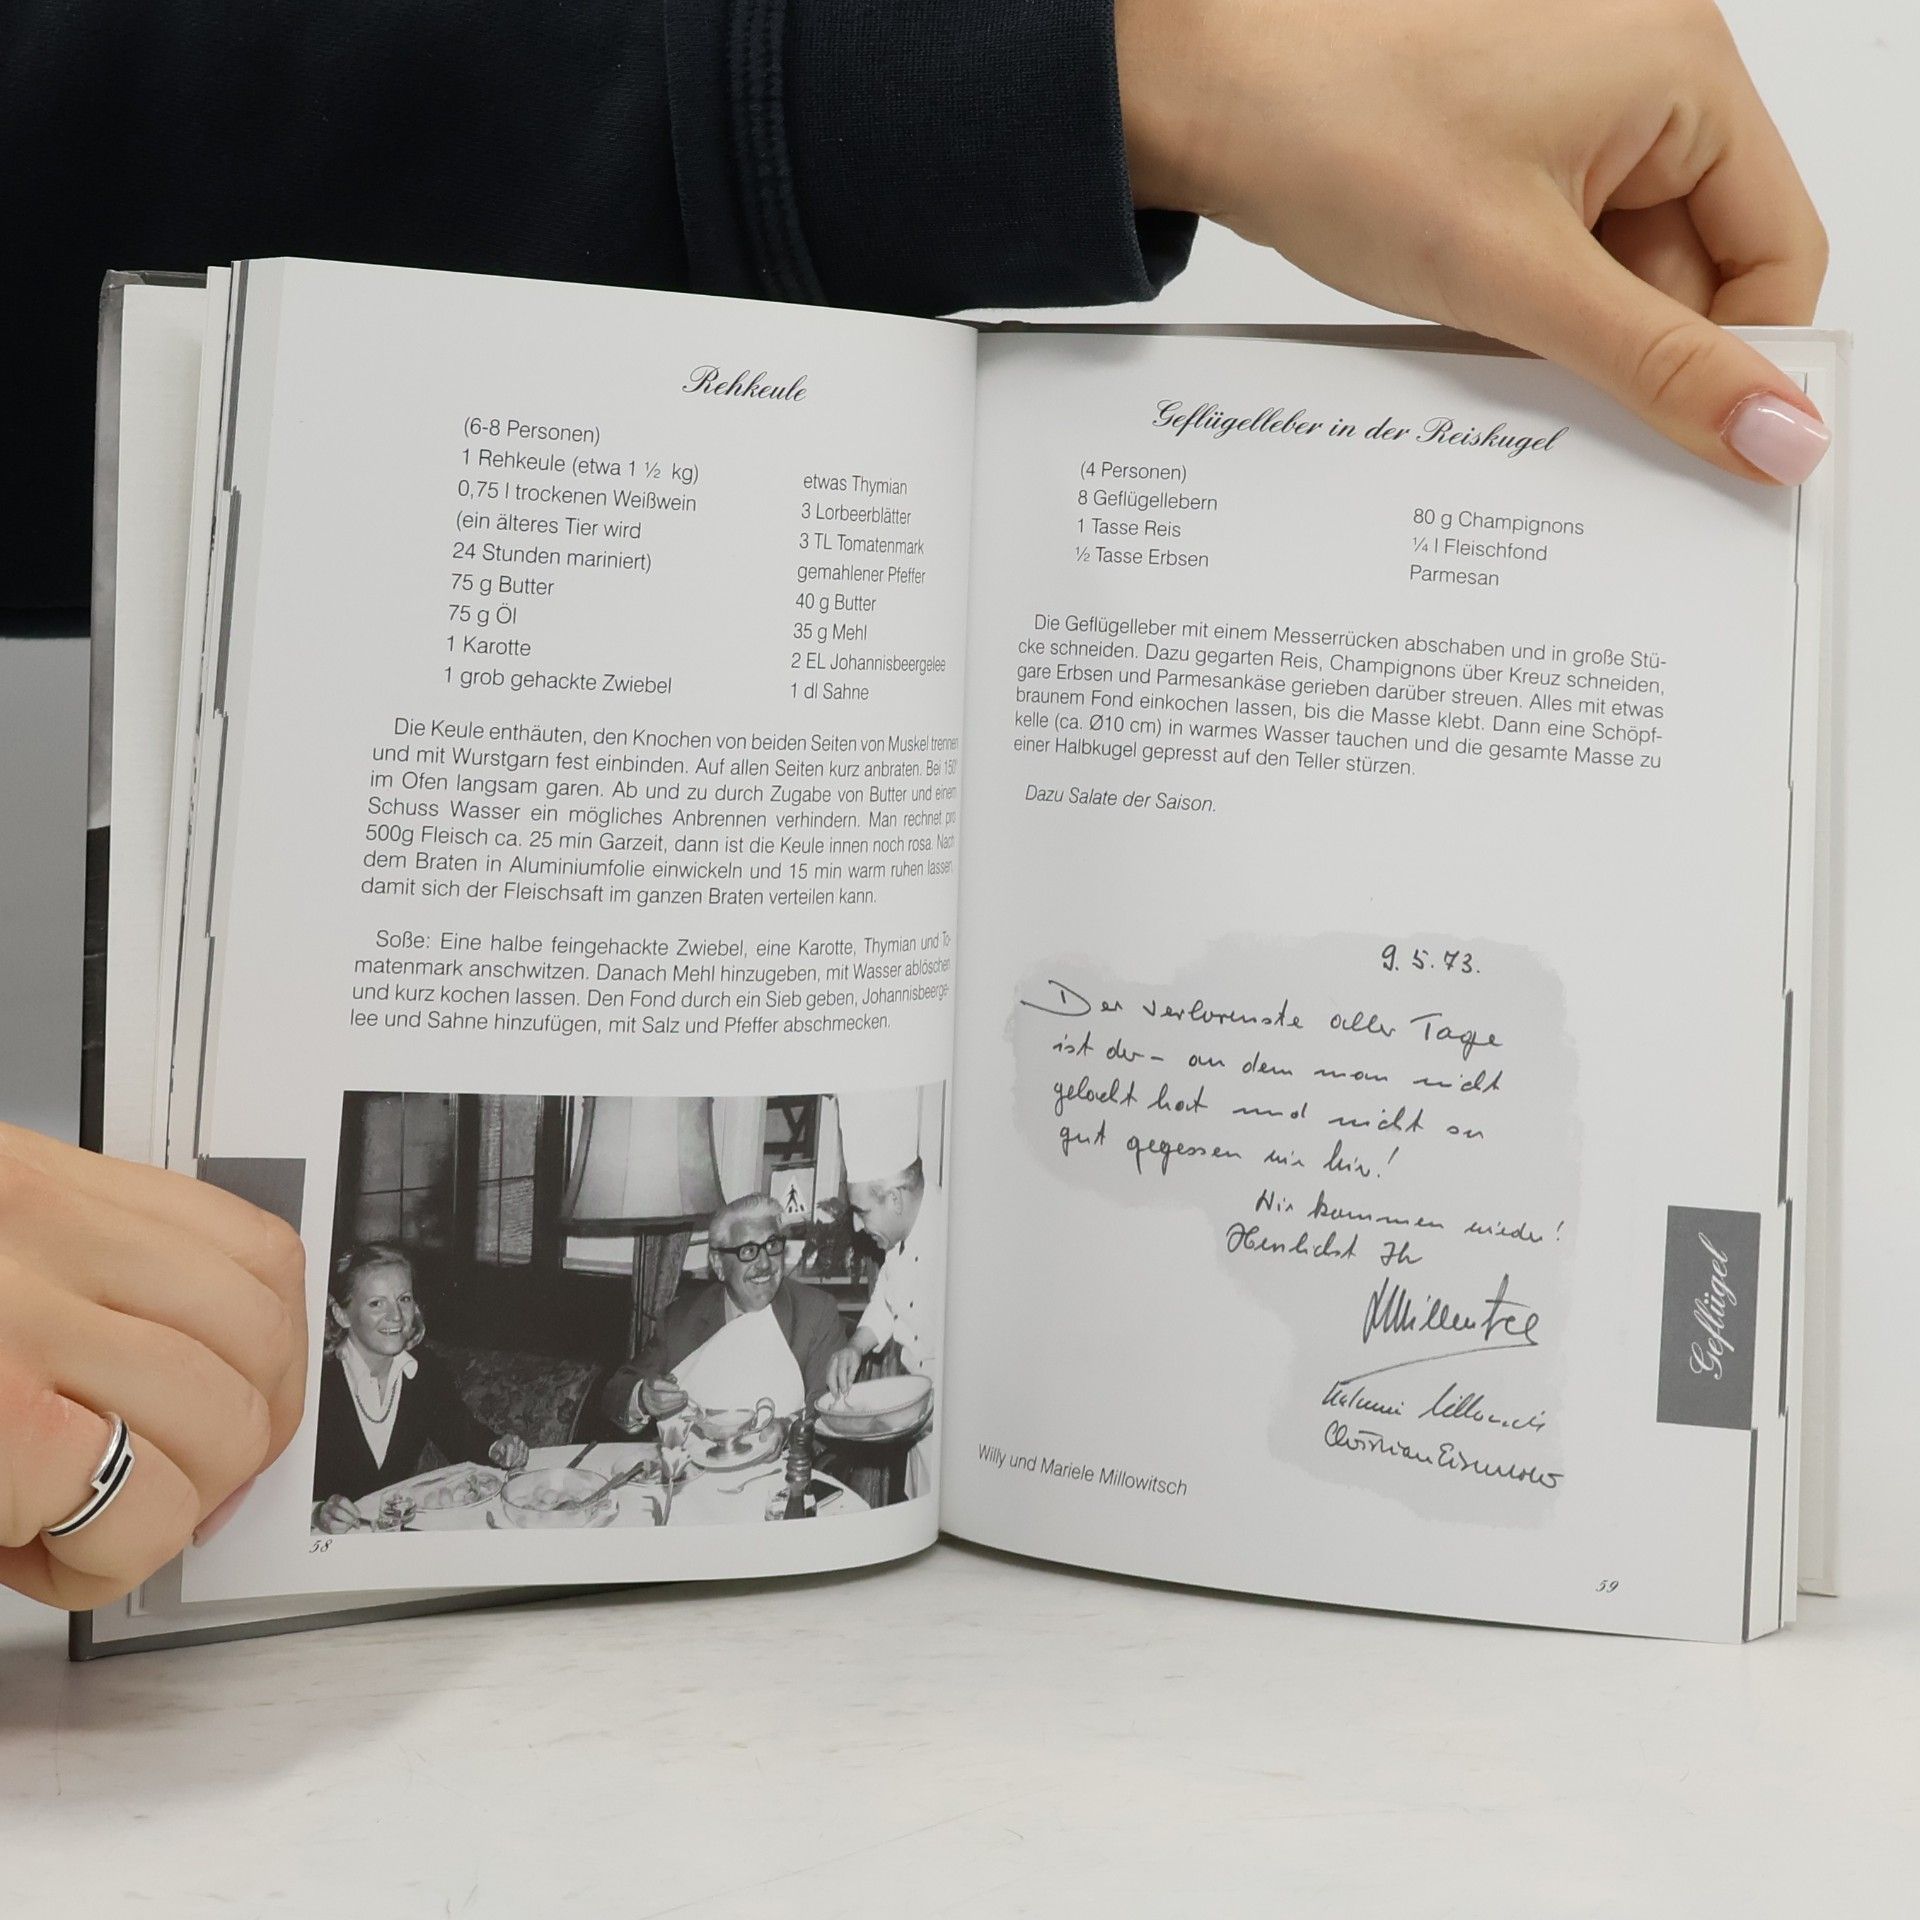 Rehkeule
(6-8 Personen)
1 Rehkeule (etwa 1 ½ kg)
0,75 l trockenen Weißwein
(ein älteres Tier wird
24 Stunden mariniert)
75 g Butter
75 g Öl
1 Karotte
1 grob gehackte Zwiebel
etwas Thymian
3 Lorbeerblätter
3 TL Tomatenmark
gemahlener Pfeffer
40 g Butter
35 g Mehl
2 EL Johannisbeergelee
1 dl Sahne
Die Keule enthäuten, den Knochen von beiden Seiten von Muskel trennen
und mit Wurstgarn fest einbinden. Auf allen Seiten kurz anbraten. Bei 150°
im Ofen langsam garen. Ab und zu durch Zugabe von Butter und einem
Schuss Wasser ein mögliches Anbrennen verhindern. Man rechnet pro
500g Fleisch ca. 25 min Garzeit, dann ist die Keule innen noch rosa. Nach
dem Braten in Aluminiumfolie einwickeln und 15 min warm ruhen lassen,
damit sich der Fleischsaft im ganzen Braten verteilen kann.
Soße: Eine halbe feingehackte Zwiebel, eine Karotte, Thymian und To-
matenmark anschwitzen. Danach Mehl hinzugeben, mit Wasser ablöschen
und kurz kochen lassen. Den Fond durch ein Sieb geben, Johannisbeerge-
lee und Sahne hinzufügen, mit Salz und Pfeffer abschmecken.
58
Geflügelleber in der Reiskugel
(4 Personen)
8 Geflügellebern
1 Tasse Reis
½ Tasse Erbsen
80 g Champignons
¼ l Fleischfond
Parmesan
Die Geflügelleber mit einem Messerrücken abschaben und in große Stü-
cke schneiden. Dazu gegarten Reis, Champignons über Kreuz schneiden,
gare Erbsen und Parmesankäse gerieben darüber streuen. Alles mit etwas
braunem Fond einkochen lassen, bis die Masse klebt. Dann eine Schöpf-
kelle (ca. Ø10 cm) in warmes Wasser tauchen und die gesamte Masse zu
einer Halbkugel gepresst auf den Teller stürzen.
Dazu Salate der Saison.
9.5.73.
Der verlorenste aller Tage
ist der – an dem man nicht
gelacht hat und nicht so
gut gegessen wie hier!
Wir kommen wieder!
Herzlichst Ihr
Willy und Mariele Millowitsch
Geflügel
59